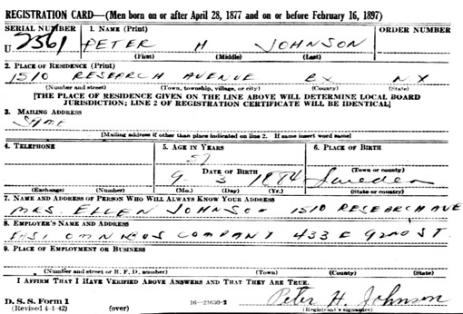 REGISTRATION CARD—(Men born on or after April 28, 1877 and on or before February 16, 1897)
SERIAL NUMBER 1. NAME (Print) ORDER NUMBER
U 2561 PETER H JOHNSON
(First) (Middle) (Last)
2. PLACE OF RESIDENCE (Print)
1510 RESEARCH AVENUE BX NY
(Number and street) (Town, township, village, or city) (County) (State)
[THE PLACE OF RESIDENCE GIVEN ON THE LINE ABOVE WILL DETERMINE LOCAL BOARD
JURISDICTION; LINE 2 OF REGISTRATION CERTIFICATE WILL BE IDENTICAL]
3. MAILING ADDRESS
SAME
[Mailing address if other than place indicated on line 2. If same insert word same]
4. TELEPHONE 5. AGE IN YEARS 6. PLACE OF BIRTH
57
DATE OF BIRTH (Town or county)
9 3 1884 Sweden
(Exchange) (Number) (Mo.) (Day) (Yr.) (State or country)
7. NAME AND ADDRESS OF PERSON WHO WILL ALWAYS KNOW YOUR ADDRESS
MRS ELLEN JOHNSON 1510 RESEARCH AVE
8. EMPLOYER'S NAME AND ADDRESS
OMNIBUS COMPANY 433 E 92ND ST.
9. PLACE OF EMPLOYMENT OR BUSINESS
(Number and street or R. F. D. number) (Town) (County) (State)
I AFFIRM THAT I HAVE VERIFIED ABOVE ANSWERS AND THAT THEY ARE TRUE.
D. S. S. Form 1 Peter H. Johnson
(Revised 4-1-42) (over) 16—21630-2 (Registrant's signature)